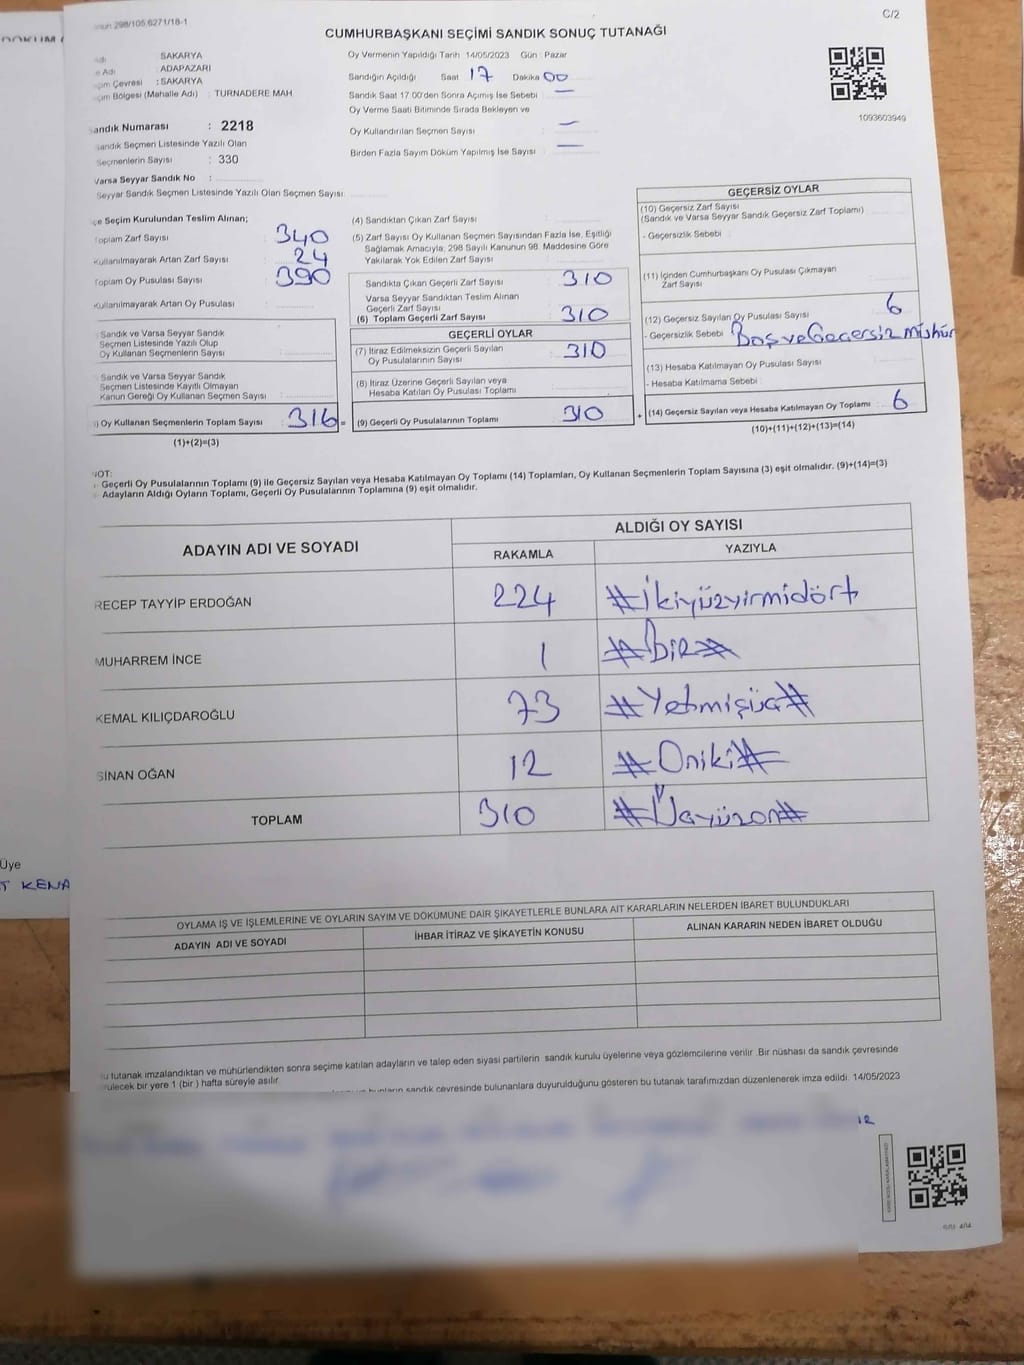 298/105,6271/18-1
C/2
CUMHURBAŞKANI SEÇİMİ SANDIK SONUÇ TUTANAĞI
SAKARYA
Adı ADAPAZARI
Çevresi : SAKARYA
Bölgesi (Mahalle Adı) : TURNADERE MAH
Sandık Numarası : 2218
Sandık Seçmen Listesinde Yazılı Olan
Seçmenlerin Sayısı : 330
Varsa Seyyar Sandık No :
Seyyar Sandık Seçmen Listesinde Yazılı Olan Seçmen Sayısı:
Oy Vermenin Yapıldığı Tarih 14/05/2023 Gün : Pazar
Sandığın Açıldığı Saat 17 Dakika 00
Sandık Saat 17:00'den Sonra Açılmış İse Sebebi : —
Oy Verme Saati Bitiminde Sırada Bekleyen ve
Oy Kullandırılan Seçmen Sayısı : —
Birden Fazla Sayım Döküm Yapılmış İse Sayısı : —
1093603949
Seçim Kurulundan Teslim Alınan;
Toplam Zarf Sayısı : 340
Kullanılmayarak Artan Zarf Sayısı : 24
Toplam Oy Pusulası Sayısı : 390
Kullanılmayarak Artan Oy Pusulası :
Sandık ve Varsa Seyyar Sandık
Seçmen Listesinde Yazılı Olup
Oy Kullanan Seçmenlerin Sayısı :
Sandık ve Varsa Seyyar Sandık
Seçmen Listesinde Kayıtlı Olmayan
Kanun Gereği Oy Kullanan Seçmen Sayısı :
Oy Kullanan Seçmenlerin Toplam Sayısı : 316 =
(1)+(2)=(3)
(4) Sandıktan Çıkan Zarf Sayısı :
(5) Zarf Sayısı Oy Kullanan Seçmen Sayısından Fazla İse, Eşitliği
Sağlamak Amacıyla, 298 Sayılı Kanunun 98. Maddesine Göre
Yakılarak Yok Edilen Zarf Sayısı :
Sandıkta Çıkan Geçerli Zarf Sayısı : 310
Varsa Seyyar Sandıktan Teslim Alınan
Geçerli Zarf Sayısı :
(6) Toplam Geçerli Zarf Sayısı : 310
GEÇERLİ OYLAR
(7) İtiraz Edilmeksizin Geçerli Sayılan
Oy Pusulalarının Sayısı : 310
(8) İtiraz Üzerine Geçerli Sayılan veya
Hesaba Katılan Oy Pusulaları Toplamı :
(9) Geçerli Oy Pusulalarının Toplamı : 310 +
GEÇERSİZ OYLAR
(10) Geçersiz Zarf Sayısı
(Sandık ve Varsa Seyyar Sandık Geçersiz Zarf Toplamı) :
- Geçersizlik Sebebi :
(11) İçinden Cumhurbaşkanı Oy Pusulası Çıkmayan
Zarf Sayısı :
(12) Geçersiz Sayılan Oy Pusulası Sayısı : 6
- Geçersizlik Sebebi : Boş ve Geçersiz mühür
(13) Hesaba Katılmayan Oy Pusulası Sayısı :
- Hesaba Katılmama Sebebi :
(14) Geçersiz Sayılan veya Hesaba Katılmayan Oy Toplamı : 6
(10)+(11)+(12)+(13)=(14)
NOT:
Geçerli Oy Pusulalarının Toplamı (9) ile Geçersiz Sayılan veya Hesaba Katılmayan Oy Toplamı (14) Toplamları, Oy Kullanan Seçmenlerin Toplam Sayısına (3) eşit olmalıdır. (9)+(14)=(3)
Adayların Aldığı Oyların Toplamı, Geçerli Oy Pusulalarının Toplamına (9) eşit olmalıdır.
ADAYIN ADI VE SOYADI
ALDIĞI OY SAYISI
RAKAMLA YAZIYLA
RECEP TAYYİP ERDOĞAN 224 #ikiyüzyirmidört
MUHARREM İNCE 1 #Bir#
KEMAL KILIÇDAROĞLU 73 #Yetmişüç#
SİNAN OĞAN 12 #Oniki#
TOPLAM 310 #Üçyüzon#
OYLAMA İŞ VE İŞLEMLERİNE VE OYLARIN SAYIM VE DÖKÜMÜNE DAİR ŞİKAYETLERLE BUNLARA AİT KARARLARIN NELERDEN İBARET BULUNDUKLARI
ADAYIN ADI VE SOYADI İHBAR İTİRAZ VE ŞİKAYETİN KONUSU ALINAN KARARIN NEDEN İBARET OLDUĞU
tutanak imzalandıktan ve mühürlendikten sonra seçime katılan adayların ve talep eden siyasi partilerin sandık kurulu üyelerine veya gözlemcilerine verilir. Bir nüshası da sandık çevresinde
bir yere 1 (bir) hafta süreyle asılır.
sandık çevresinde bulunanlara duyurulduğunu gösteren bu tutanak tarafımızdan düzenlenerek imza edildi. 14/05/2023
Üye
KENA